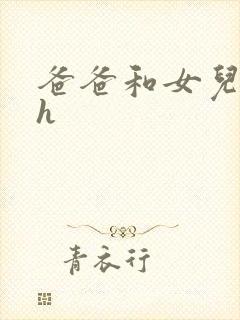 爸爸和女兒
h
青衣行